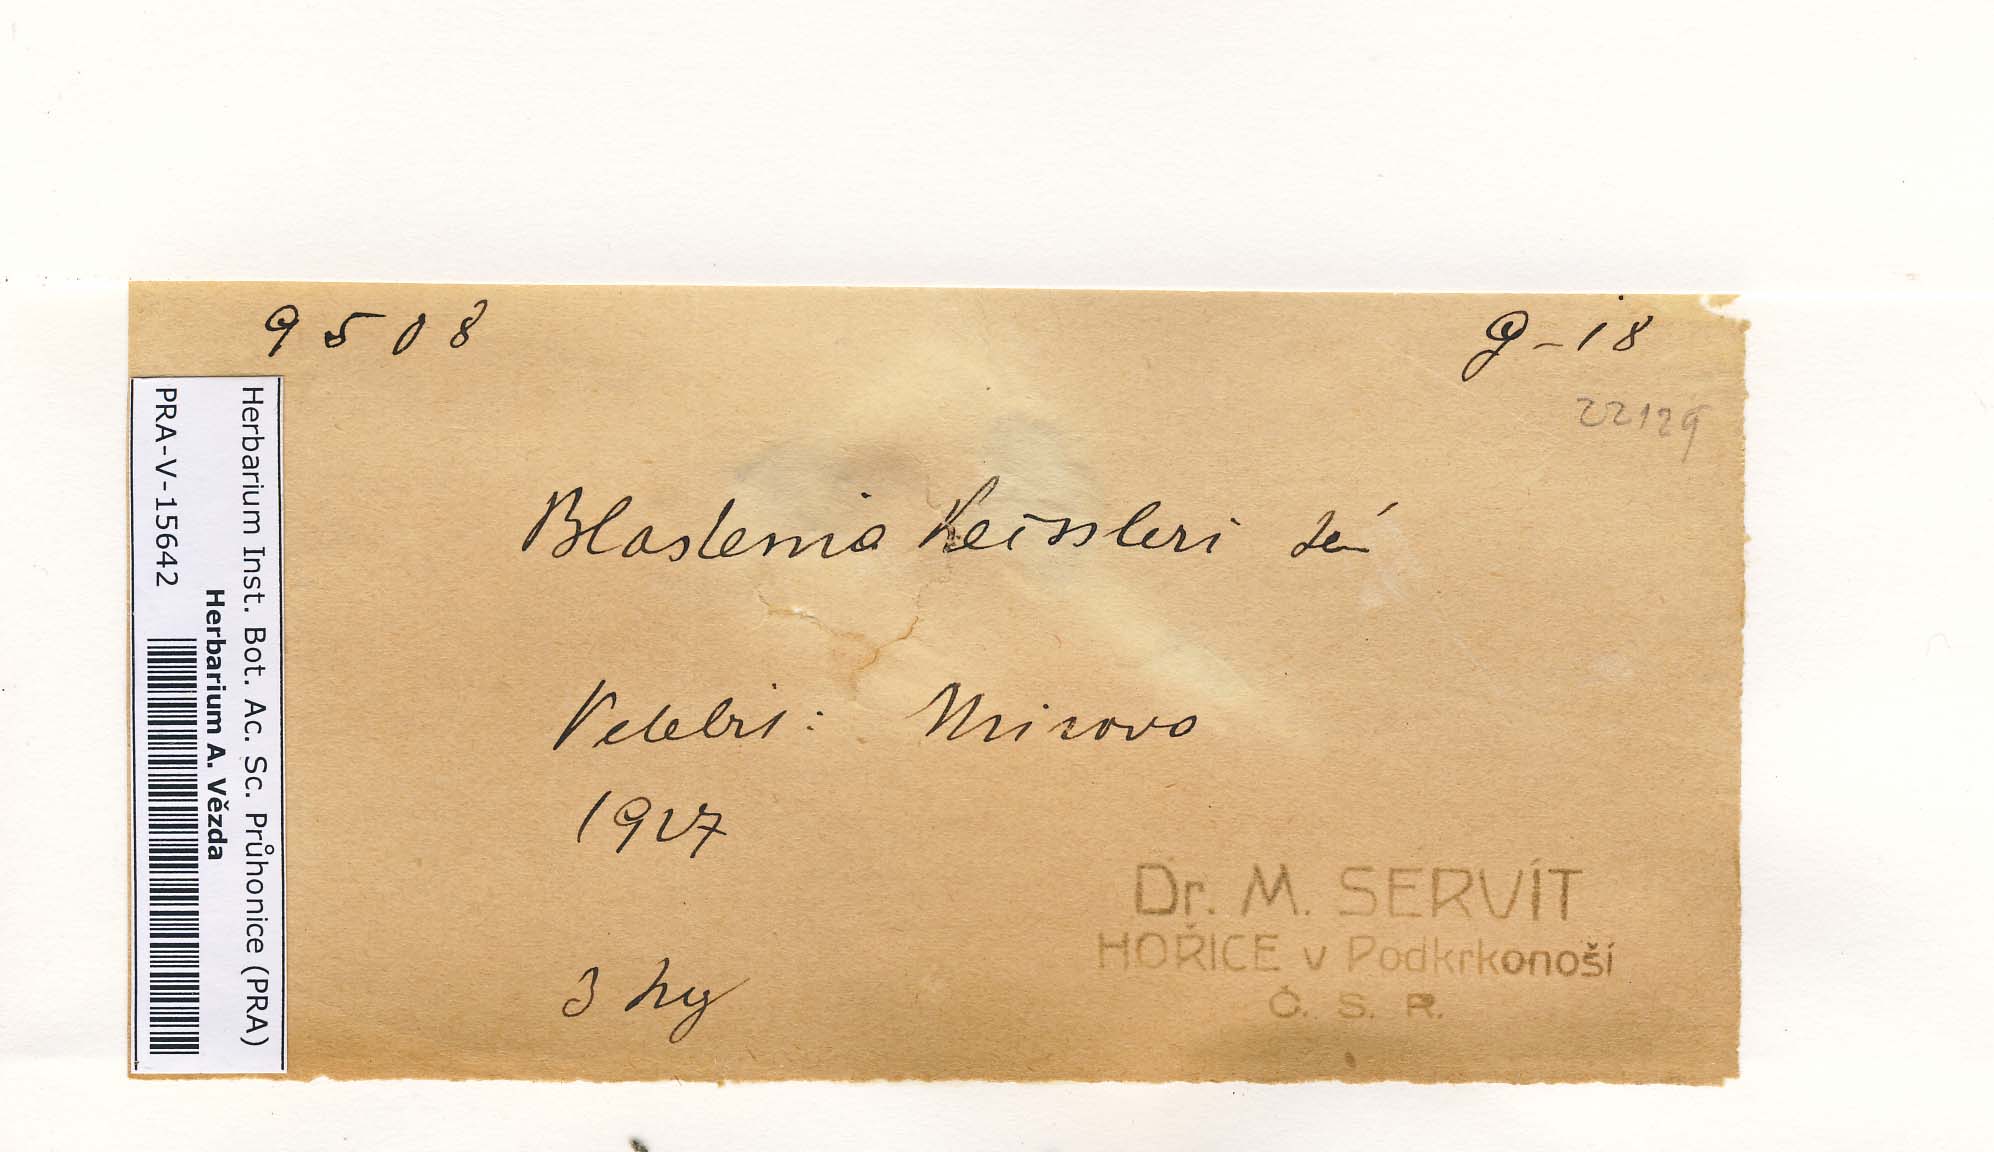 9508
g-18
22129
Blastenia Keissleri
Velebit: Mrizovo
1927
3 hg
Dr. M. SERVÍT
HOŘICE v Podkrkonoší
Č. S. R.
Herbarium Inst. Bot. Ac. Sc. Průhonice (PRA)
Herbarium A. Vězda
PRA-V-15642